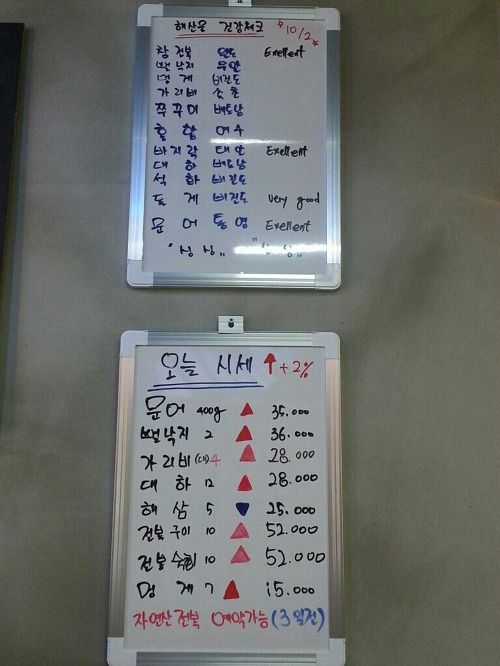 해산물 건강체크 *10/2*
참 전복 완도 Exellent
뻘 낙지 무안
멍 게 비진도
가리비 속초
쭈꾸미 베트남
홍 합 여수
바지락 태안 Exellent
대 하 베트남
석 화 비진도
돌 게 비진도 Very good
문 어 통영 Exellent
"싱싱,, "싱싱,,
오늘 시세 ↑+2%
문어 400g ▲ 35.000
뻘낙지 2 ▲ 36.000
가리비 (대) 4 ▲ 28.000
대 하 12 ▲ 28.000
해 삼 5 ▼ 25.000
전복 구이 10 ▲ 52.000
전복 숙회 10 ▲ 52.000
멍 게 7 ▲ 15.000
자연산 전복 예약가능 (3일전)